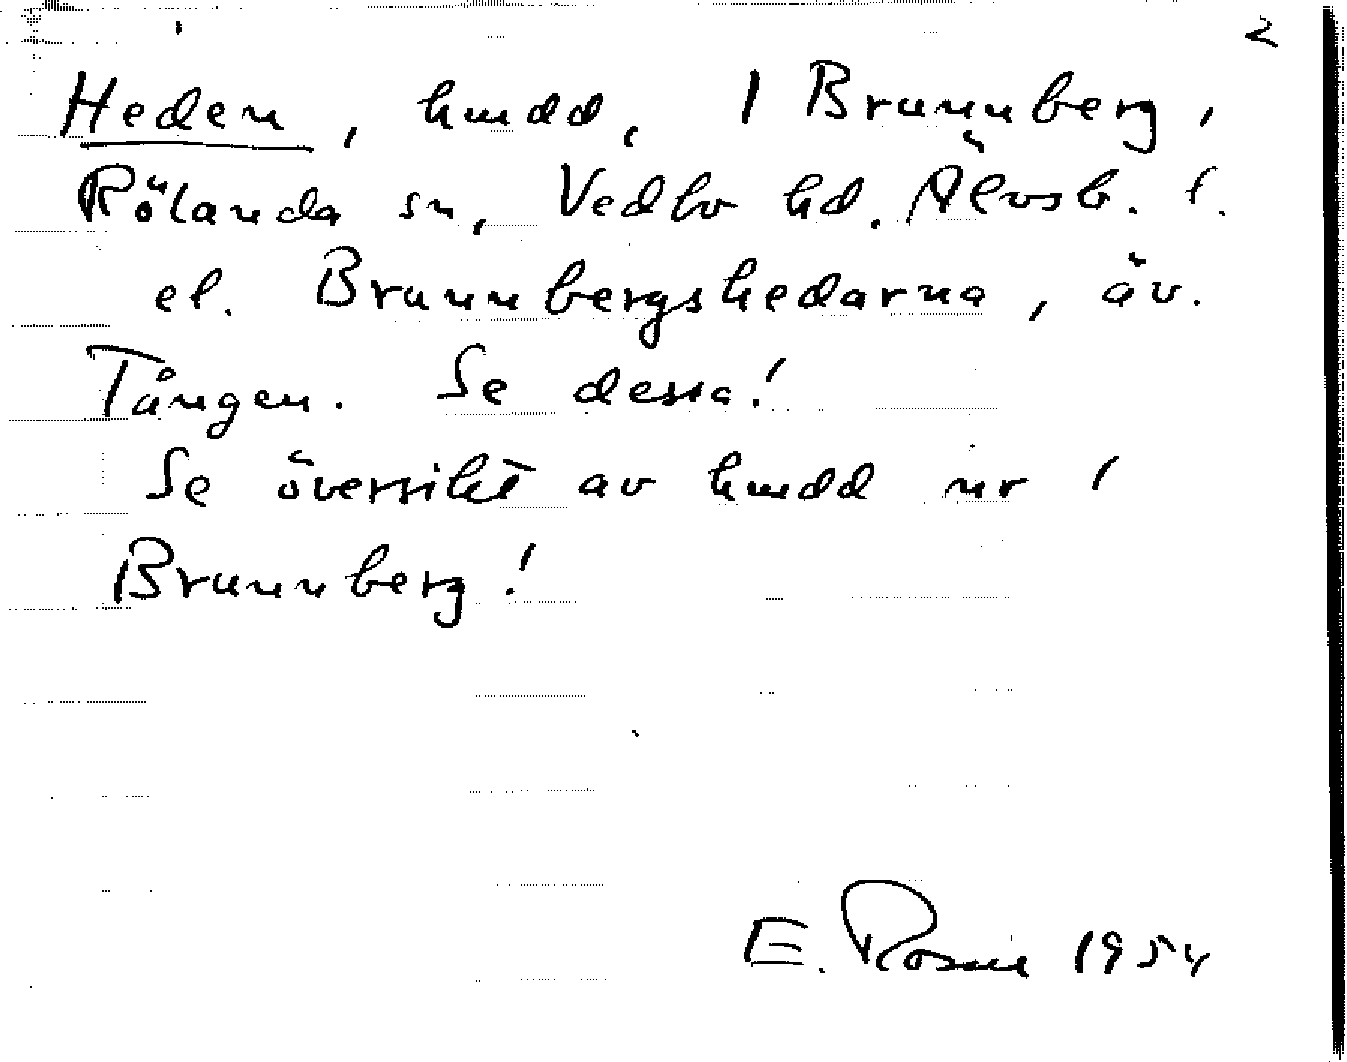 2
Heden, hmdd, 1 Brunnberg,
Rölanda sn, Vedbo hd. Älvsb. l.
el. Brunnbergshedarna, äv.
Tången. Se dessa!
Se översikt av hmdd nr 1
Brunnberg!
E. 1954